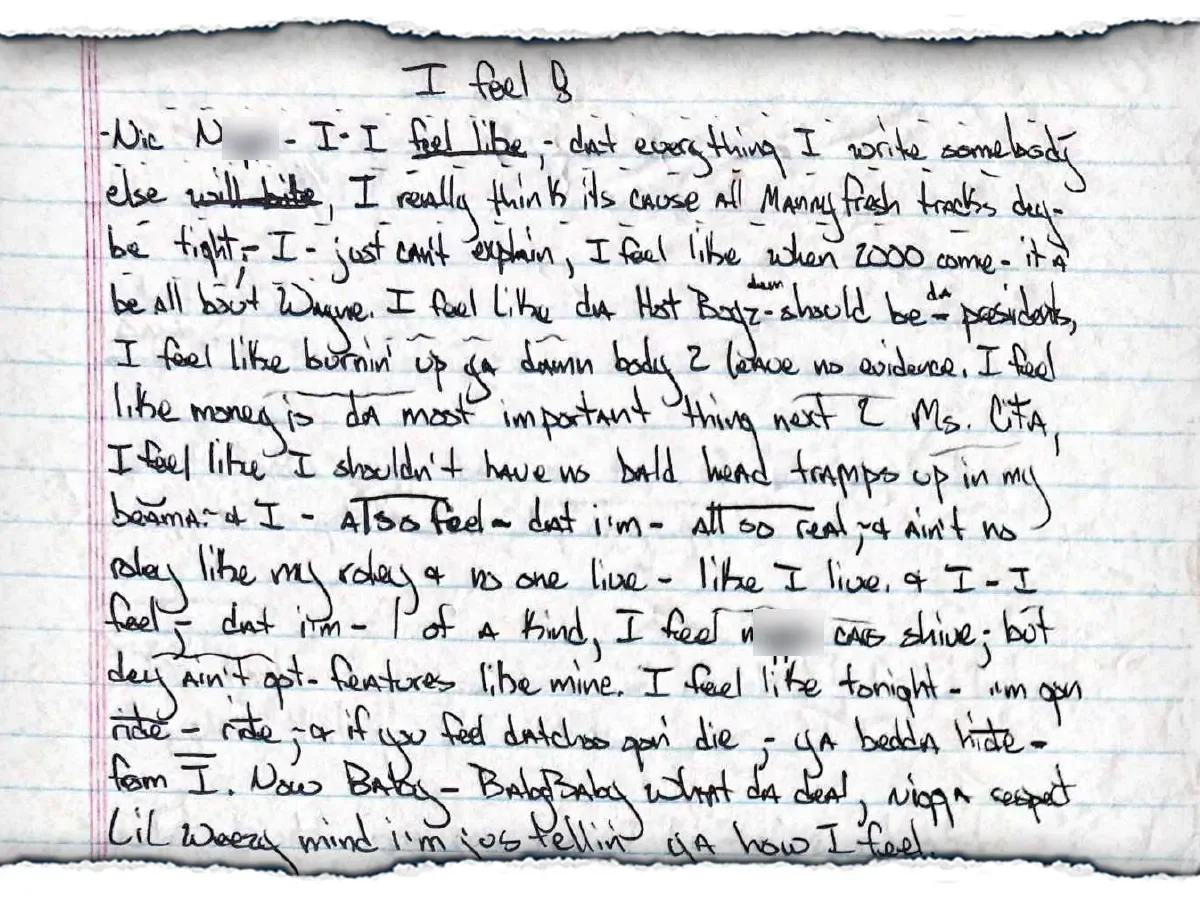 I feel 8
-Nic N - I-I feel like, - dat everything I write somebody
else will bite, I really think its cause all Manny fresh tracks dey-
be tight,- I - just can't explain, I feel like when 2000 come - it a
be all bout Wayne. I feel like da Hot Boyz - dem should be - da presidents,
I feel like burnin' up ya damn body 2 leave no evidence. I feel
like money is da most important thing next 2 Ms. Cita,
I feel like I shouldn't have no bald head tramps up in my
beama.- & I - also feel - dat i'm - all so real, - & ain't no
roley like my roley & no one live - like I live. & I - I
feel, - dat i'm - 1 of a kind, I feel n can shine; but
dey ain't got - features like mine. I feel like tonight - i'm gon
ride - ride, - & if you feel datchoo gon' die, - ya bedda hide -
from I. Now Baby - BabyBaby what da deal, nigga respect
Lil Weezy mind i'm jus tellin' ya how I feel.